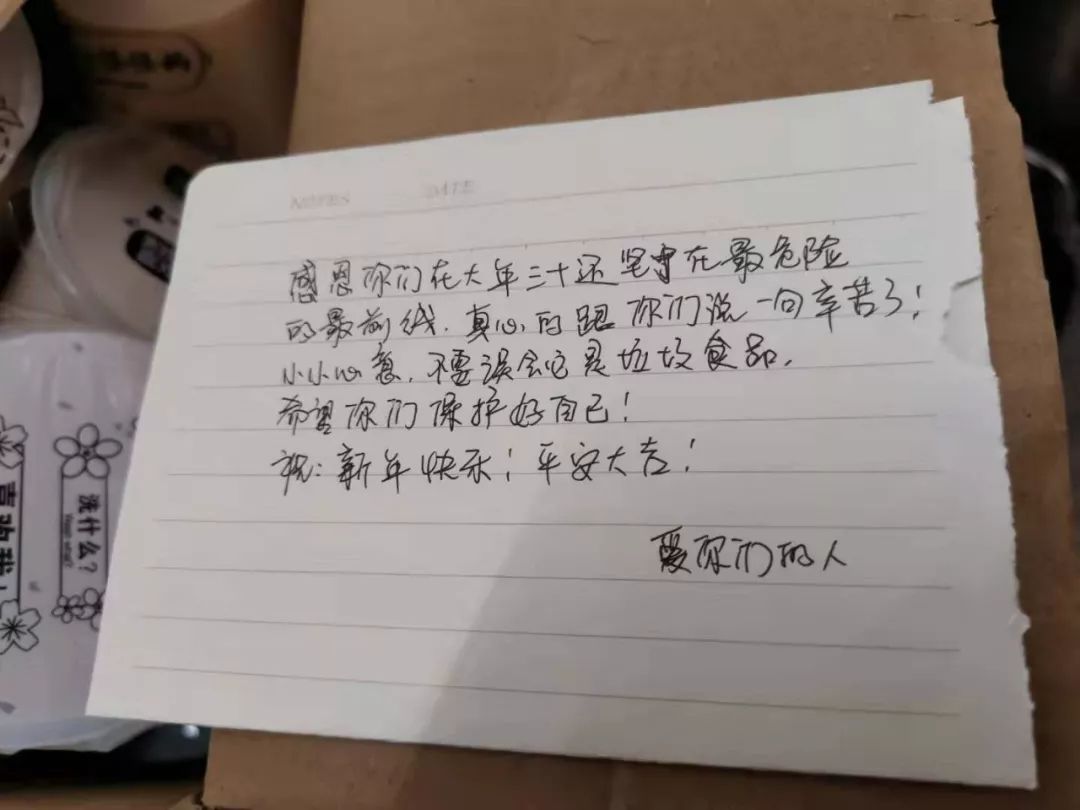 NOTES DATE
感恩你们在大年三十还坚守在最危险
的最前线.真心的跟你们说一句辛苦了!
小小心意,不要误会它是垃圾食品.
希望你们保护好自己!
祝:新年快乐!平安大吉!
爱你们的人
洗什么?
喜欢我